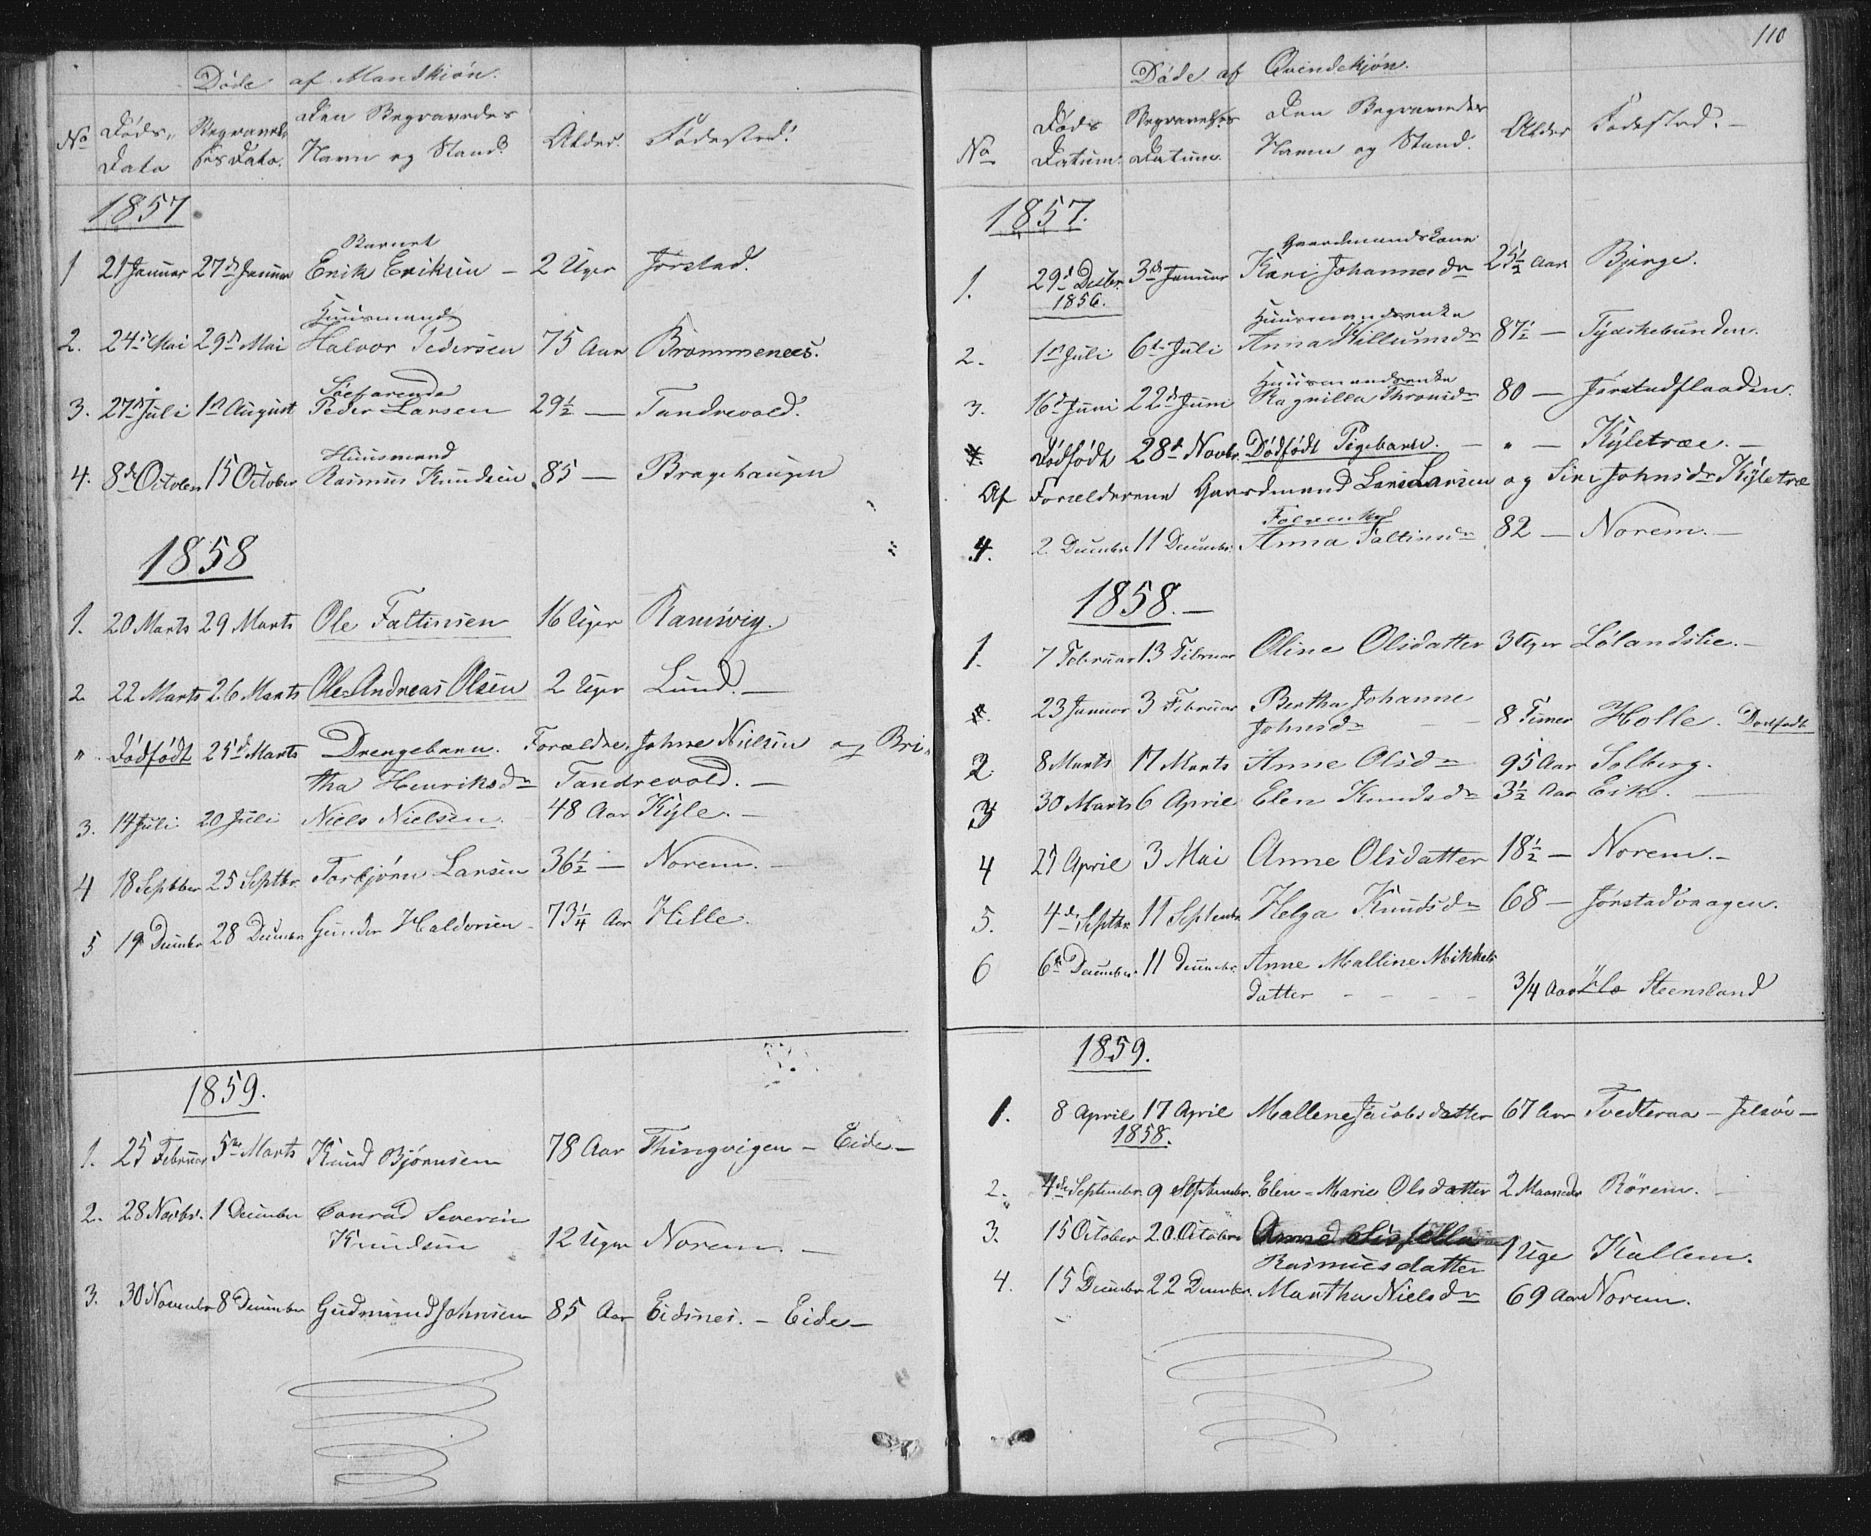 Døde af Mandkjøn.
No Døds-Dato Begravelses Dato. Den Begravedes Navn og Stand. Alder. Fødested.
1857
Barnet
1 21 Januar 27de Januar Erik Eriksen – 2 Uger Jørstad.
Huusmand
2. 24de Mai 29de Mai Halvor Pedersen 75 Aar Brommenees.
Søefarende
3. 27de Juli 1ste August Peder Larsen 29½ — Tandrevold.
Huusmand
4. 8de October 15 October Rasmus Knudsen 85 — Bragehaugen
1858
1. 20 Marts 29 Marts Ole Faltinsen 16 Uger Ramsvig.
2 22 Marts 26 Marts Ole Andreas Olsen 2 Uger Lund. —
" Dødfødt 25de Marts Drengebarn. Forældre, Johne Nielsen og Bri-
tha Henriksdr Tandrevold. —
3. 14 Juli 20 Juli Niels Nielsen. 48 Aar Kyle. —
4 18 Septber 25 Septbr. Torbjørn Larsen 36½ — Norem. —
5 19 Decembr 28 Decembr Gunder Haldorsen – 73¼ Aar Hille.
1859.
1. 25 Februar 5te Marts Knud Bjørnsen 78 Aar Thingvigen – Eide –
2. 28 Novbr. 1 December Conrad Severin
Knudsen 12 Uger Norem. —
3. 30 Novembr 8 December Gudmund Johnsen 85 Aar Eidsnes. – Eide –
110
Døde af Qvindekjøn.
No Døds Datum. Begravelses Datum. Den Begravedes Navn og Stand. Alder Fødested. —
1857.
Gaardmandskone
1. 29de Decbr. 3de Januar Kari Johannesdr 25½ Aar Bjerge.
1856.
Huusmandsenke
2. 1ste Juli 6te Juli Anna Killumsdr 87½ — Tydskebunden.
Huusmandsenke
3. 16de Juni 22de Juni Ragnilla Thronsdr 80 — Jørstadflaaden.
Dødfødt 28de Novbr. Dødfødt Pigebarn. — " — Kyletræe. —
Af Forælderene Gaardmand Lars Larsen og Siri Johnsdr Kyletræ
4. 2 Decembr 11 Decembr. Anna Faltinsdr 82 — Norem. —
1858. —
1. 7 Februar 13 Februar Oline Olsdatter 3 Uger Lølandslie. —
23 Januar 3 Februar Bertha Johanne
Johnsdr – – 8 Timer Holle. Dødfødt
2 8 Marts 17 Marts Anne Olsdr 95 Aar Solberg.
3 30 Marts 6 April Elen Knudsdr 3½ Aar Eik. —
4 27 April 3 Mai Anne Olsdatter 18½ — Norem. –
5. 4de Septbr. 11 Septembr Helga Knudsdr 68 — Jørstadvaagen.
6 6te Decembr. 11 Decembr. Anne Malline Mikkels
datter – – – – 3/4 Aar Steensland
1859.
1. 8 April 17 April Mallene Jacobsdatter 67 Aar Tvedteraa – Jelsøe –
1858.
2. 4de Septembr. 9 Septembr. Elen-Marie Olsdatter 2 Maaneder Rörem. –
3. 15 October 20. October
Rasmusdatter 1 Uge Kallem.
4. 15 Decembr 22 Decembr. Martha Nielsdr 69 Aar Norem.